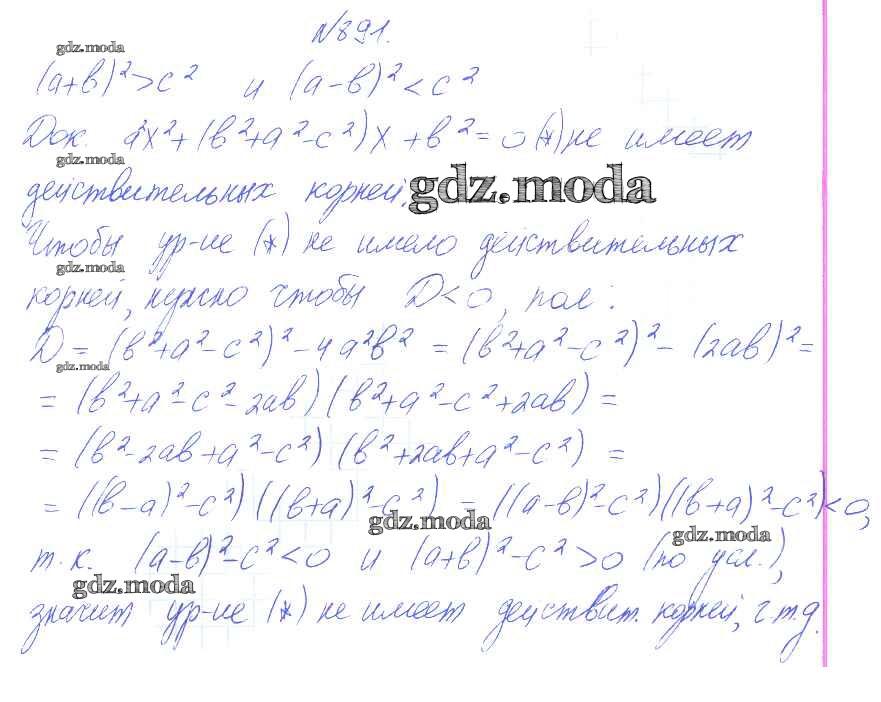 №891.
gdz.moda
(a+b)²>c² и (a-b)²<c²
Док. a²x²+(b²+a²-c²)x+b²=0 (*) не имеет
gdz.moda
действительных корней.
gdz.moda
Чтобы ур-ие (*) не имело действительных
gdz.moda
корней, нужно чтобы D<0, пол:
D=(b²+a²-c²)²-4a²b² = (b²+a²-c²)²-(2ab)²=
gdz.moda
=(b²+a²-c²-2ab)(b²+a²-c²+2ab)=
=(b²-2ab+a²-c²)(b²+2ab+a²-c²)=
=((b-a)²-c²)((b+a)²-c²)=((a-b)²-c²)((b+a)²-c²)<0,
gdz.moda
gdz.moda
т.к. (a-b)²-c²<0 и (a+b)²-c²>0 (по усл.),
gdz.moda
значит ур-ие (*) не имеет действит. корней, ч.т.д.